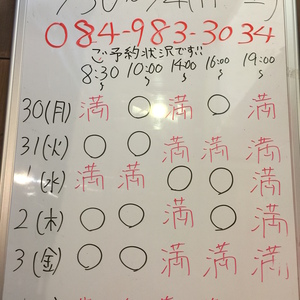 084-983-3034
ご予約状況です!!
8:30~ 10:00~ 14:00~ 16:00~ 19:00~
30(月) 満 ○ 満 ○ 満
31(火) ○ ○ 満 満 満
1(水) 満 満 ○ ○ 満
2(木) ○ ○ 満 ○ 満
3(金) ○ ○ 満 満 満